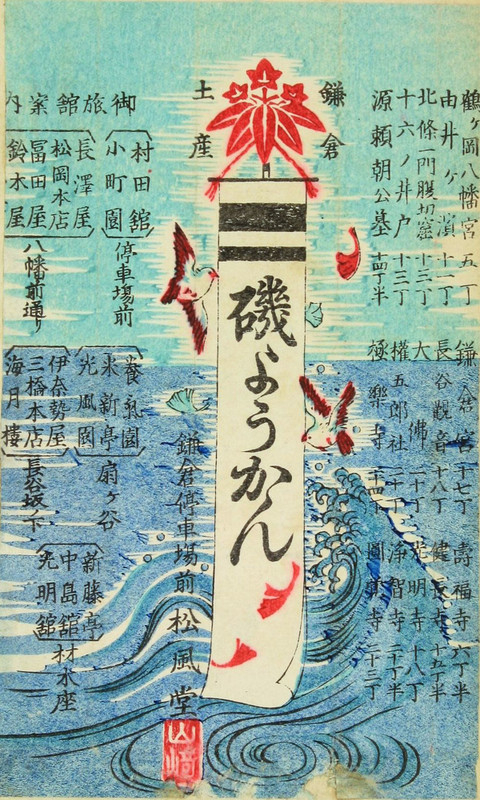 鶴ヶ岡八幡宮 五丁
由井ヶ濱 十一丁
北條一門腹切窟 十三丁
十六ノ井戸 十三丁
源頼朝公墓 十四丁半
鎌倉宮 十七丁
長谷觀音 十八丁
大佛 二十丁
權五郎社 二十丁
極樂寺 二十四丁
壽福寺 六丁半
健長寺 十五丁半
光明寺 十八丁
淨智寺 二十丁半
圓覺寺 二十三丁
鎌倉
土産
磯ようかん
鎌倉停車場前 松風堂
山﨑
御旅舘案内
村田舘
小町園
停車場前
長澤屋
松岡本店
冨田屋
鈴木屋
八幡前通り
養氣園
米新亭
光風園
扇ヶ谷
伊奈勢屋
三橋本店
海月樓
長谷坂ノ下
新藤亭
中島舘
光明舘
材木座